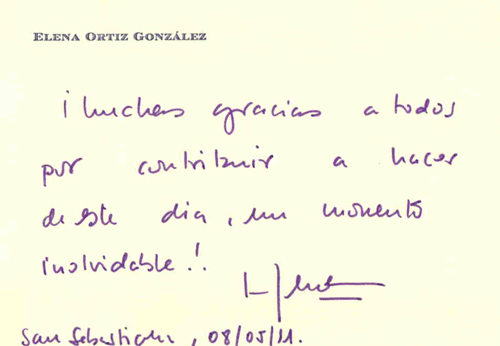 ELENA ORTIZ GONZÁLEZ
¡Muchas gracias a todos
por contribuir a hacer
de este dia, un momento
inolvidable!
San Sebastian, 08/05/11.